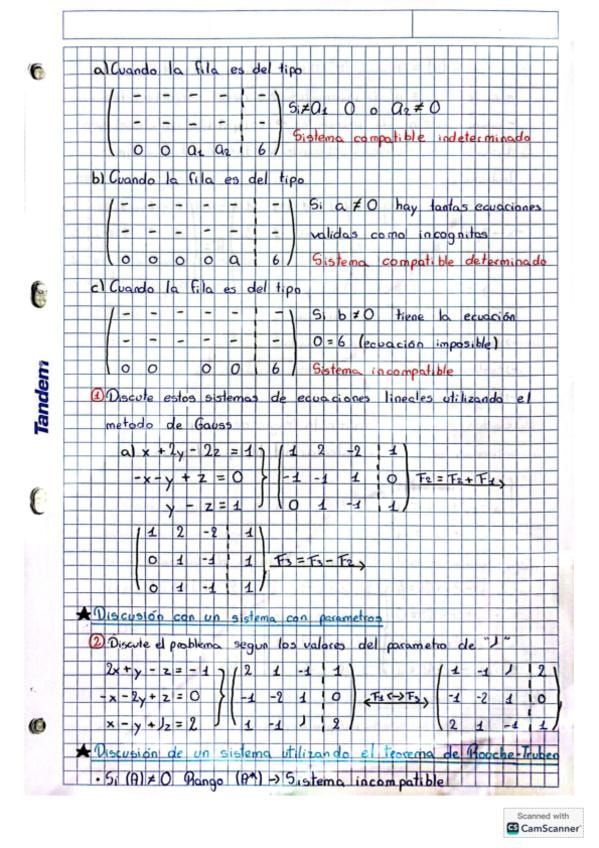 a) Cuando la fila es del tipo
- - - - -
Si≠a1 0 o a2 ≠ 0
- - - - -
Sistema compatible indeterminado
0 0 a1 a2 6
b) Cuando la fila es del tipo
- - - - - - Si a ≠ 0 hay tantas ecuaciones
- - - - - - validas como incognitas
0 0 0 0 a 6 Sistema compatible determinado
c) Cuando la fila es del tipo
- - - - - - Si b ≠ 0 tiene la ecuación
- - - - - - 0=6 (ecuación imposible)
0 0 0 0 6 Sistema incompatible
① Discute estos sistemas de ecuaciones lineales utilizando el
metodo de Gauss
a) x + 2y - 2z = 1 1 2 -2 1
-x-y + z = 0 -1 -1 1 0 F2 = F2 + F1
y - z = 1 0 1 -1 1
1 2 -2 1
0 1 -1 1 F3 = F3 - F2
0 1 -1 1
★ Discusión con un sistema con parametros
② Discute el problema segun los valores del parametro de "J"
2x+y - z = -1 2 1 -1 1 1 -1 J 2
-x - 2y + z = 0 -1 -2 1 0 F1 <-> F3 -1 -2 1 0
x - y + Jz = 2 1 -1 J 2 2 1 -1 1
★ Discusión de un sistema utilizando el teorema de Rouche-Trubeo
• Si (A) ≠ 0 Rango (A*) → Sistema incompatible
Tandem
Scanned with
CS CamScanner